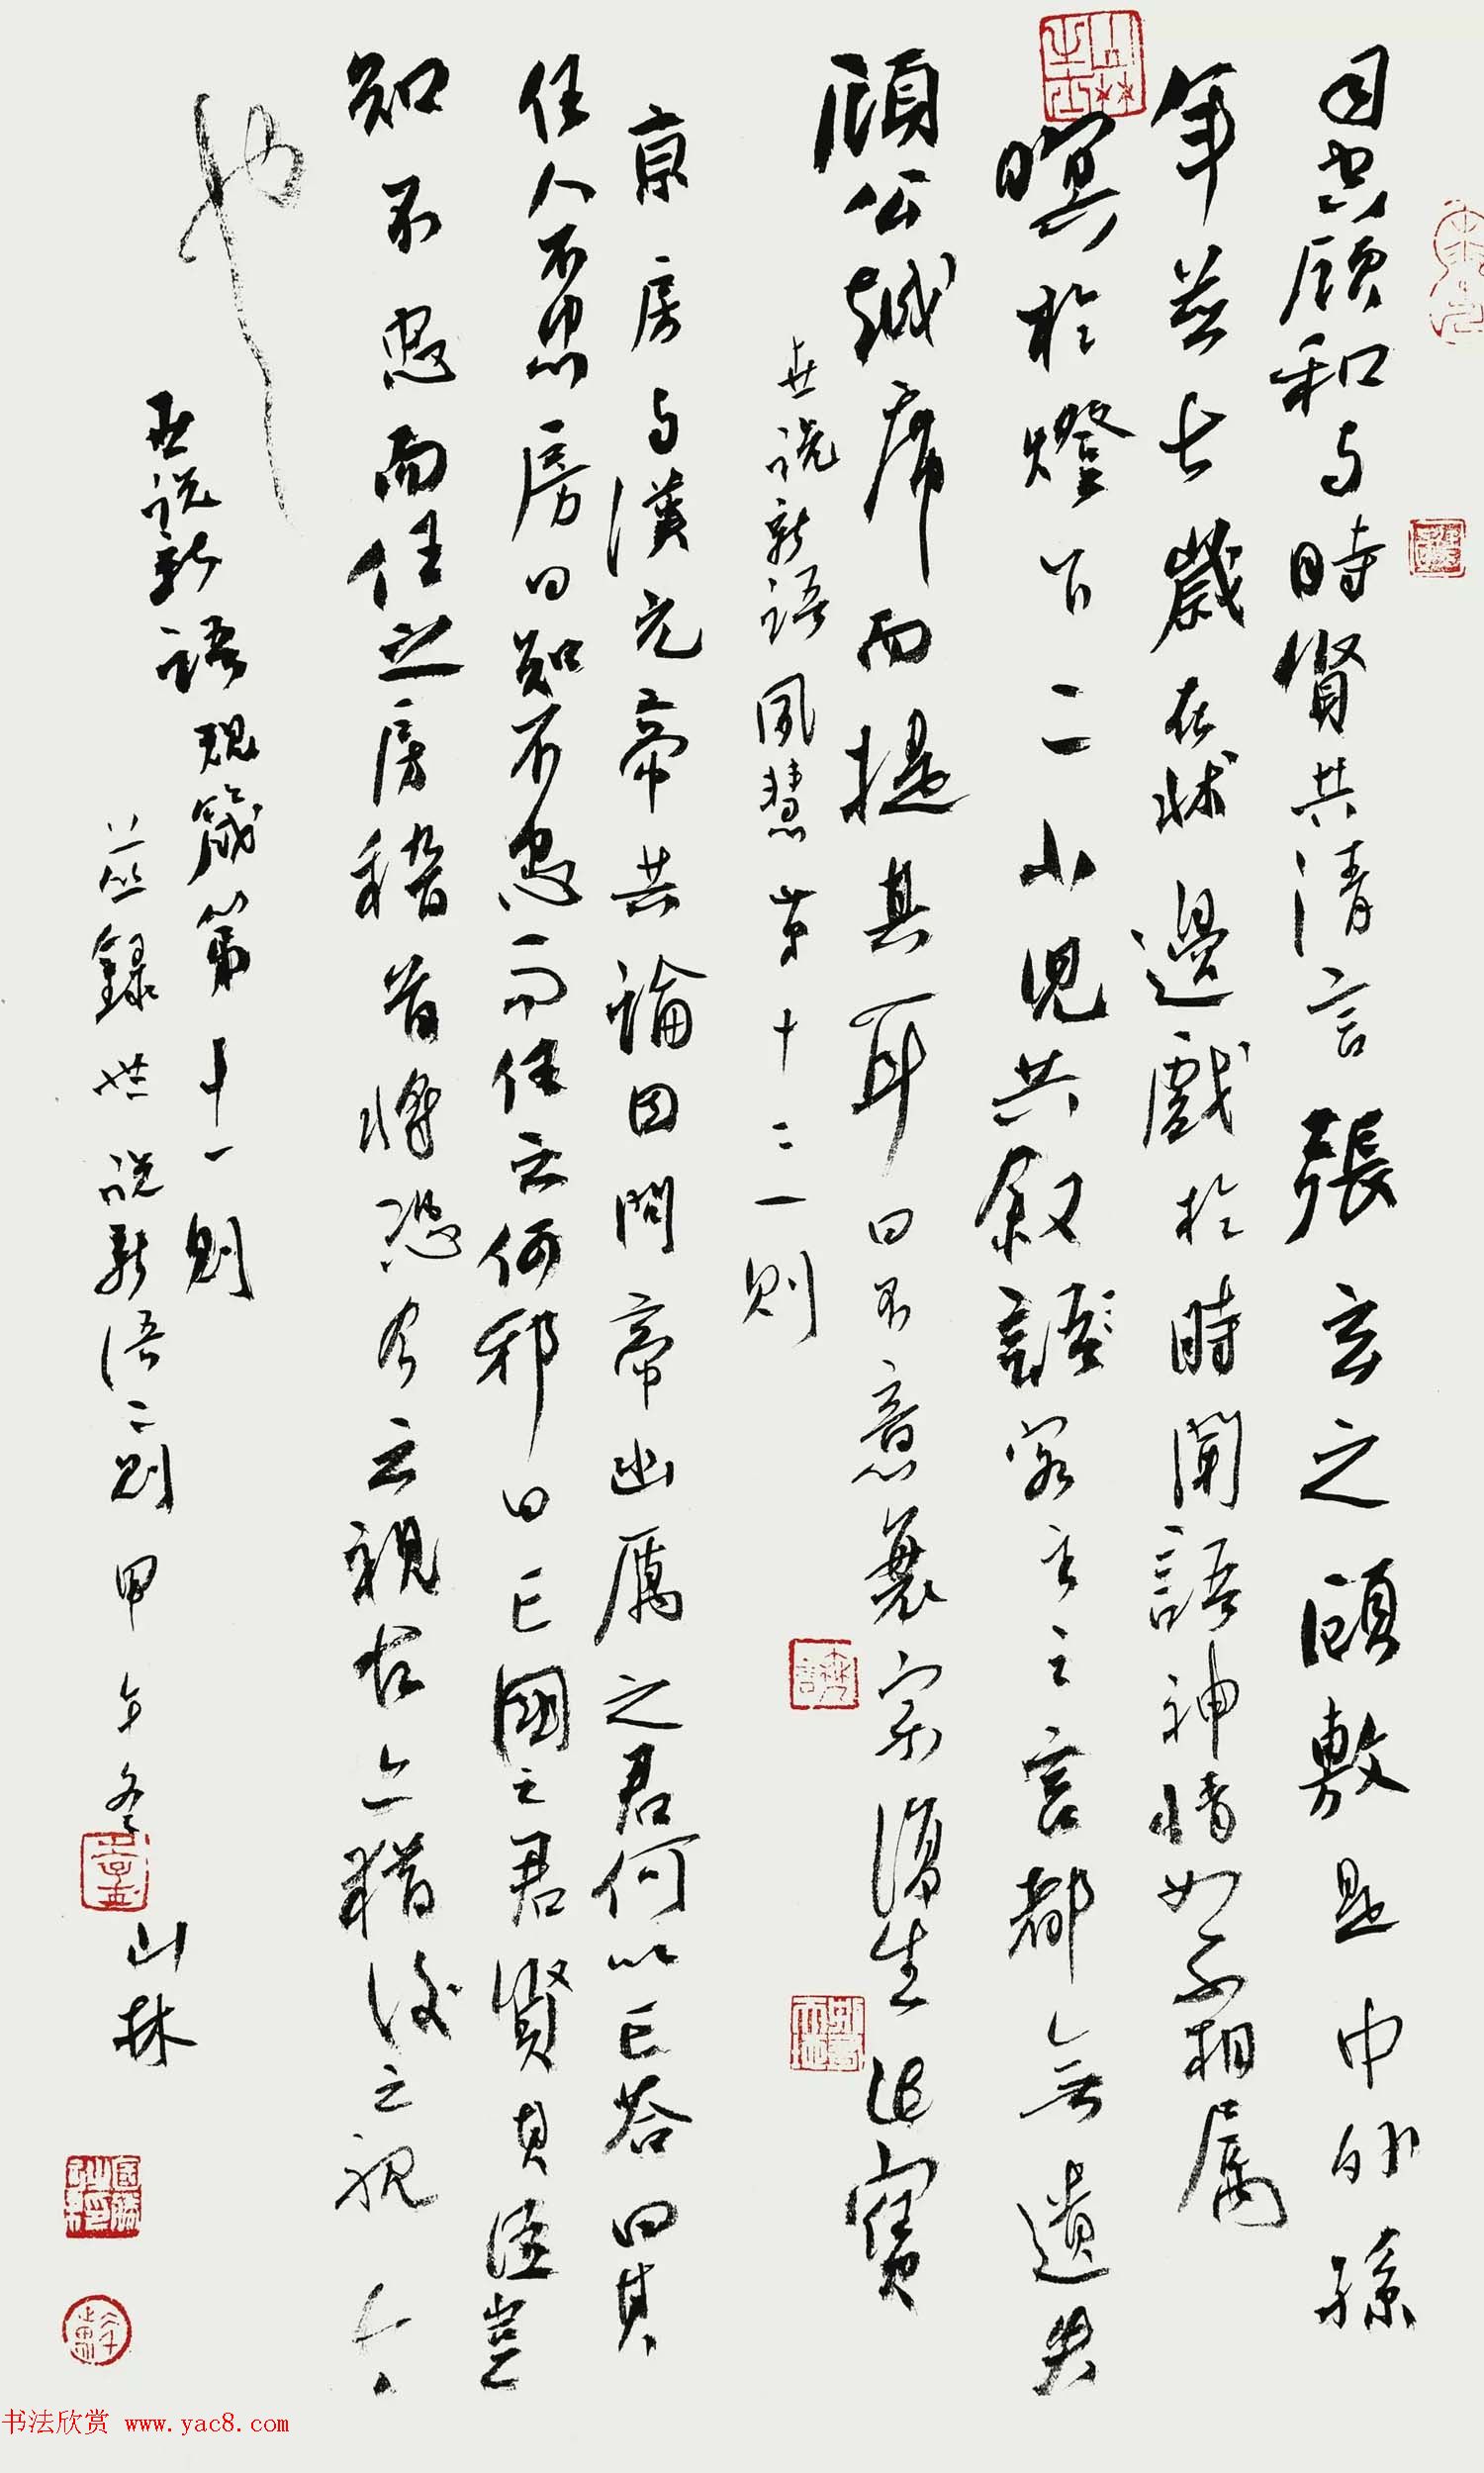 司空顧和与時賢共清言張玄之顧敷是中外孫
年並七歲在牀邊戲於時聞語神情如不相属
暝於燈下二小児共叙客主之言都無遺失
顧公越席而提其耳曰不意衰宗復生此寳
世説新語夙慧第十二一則
京房与漢元帝共論因問帝幽厲之君何以亡答曰其
任人不忠房曰知不忠而任之何邪曰亡國之君各賢其臣豈
知不忠而任之房稽首曰將恐今之視古亦猶後之視今
也
世説新語規箴第十一則
並録世説新語二則甲午冬
山林
书法欣赏 www.yac8.com